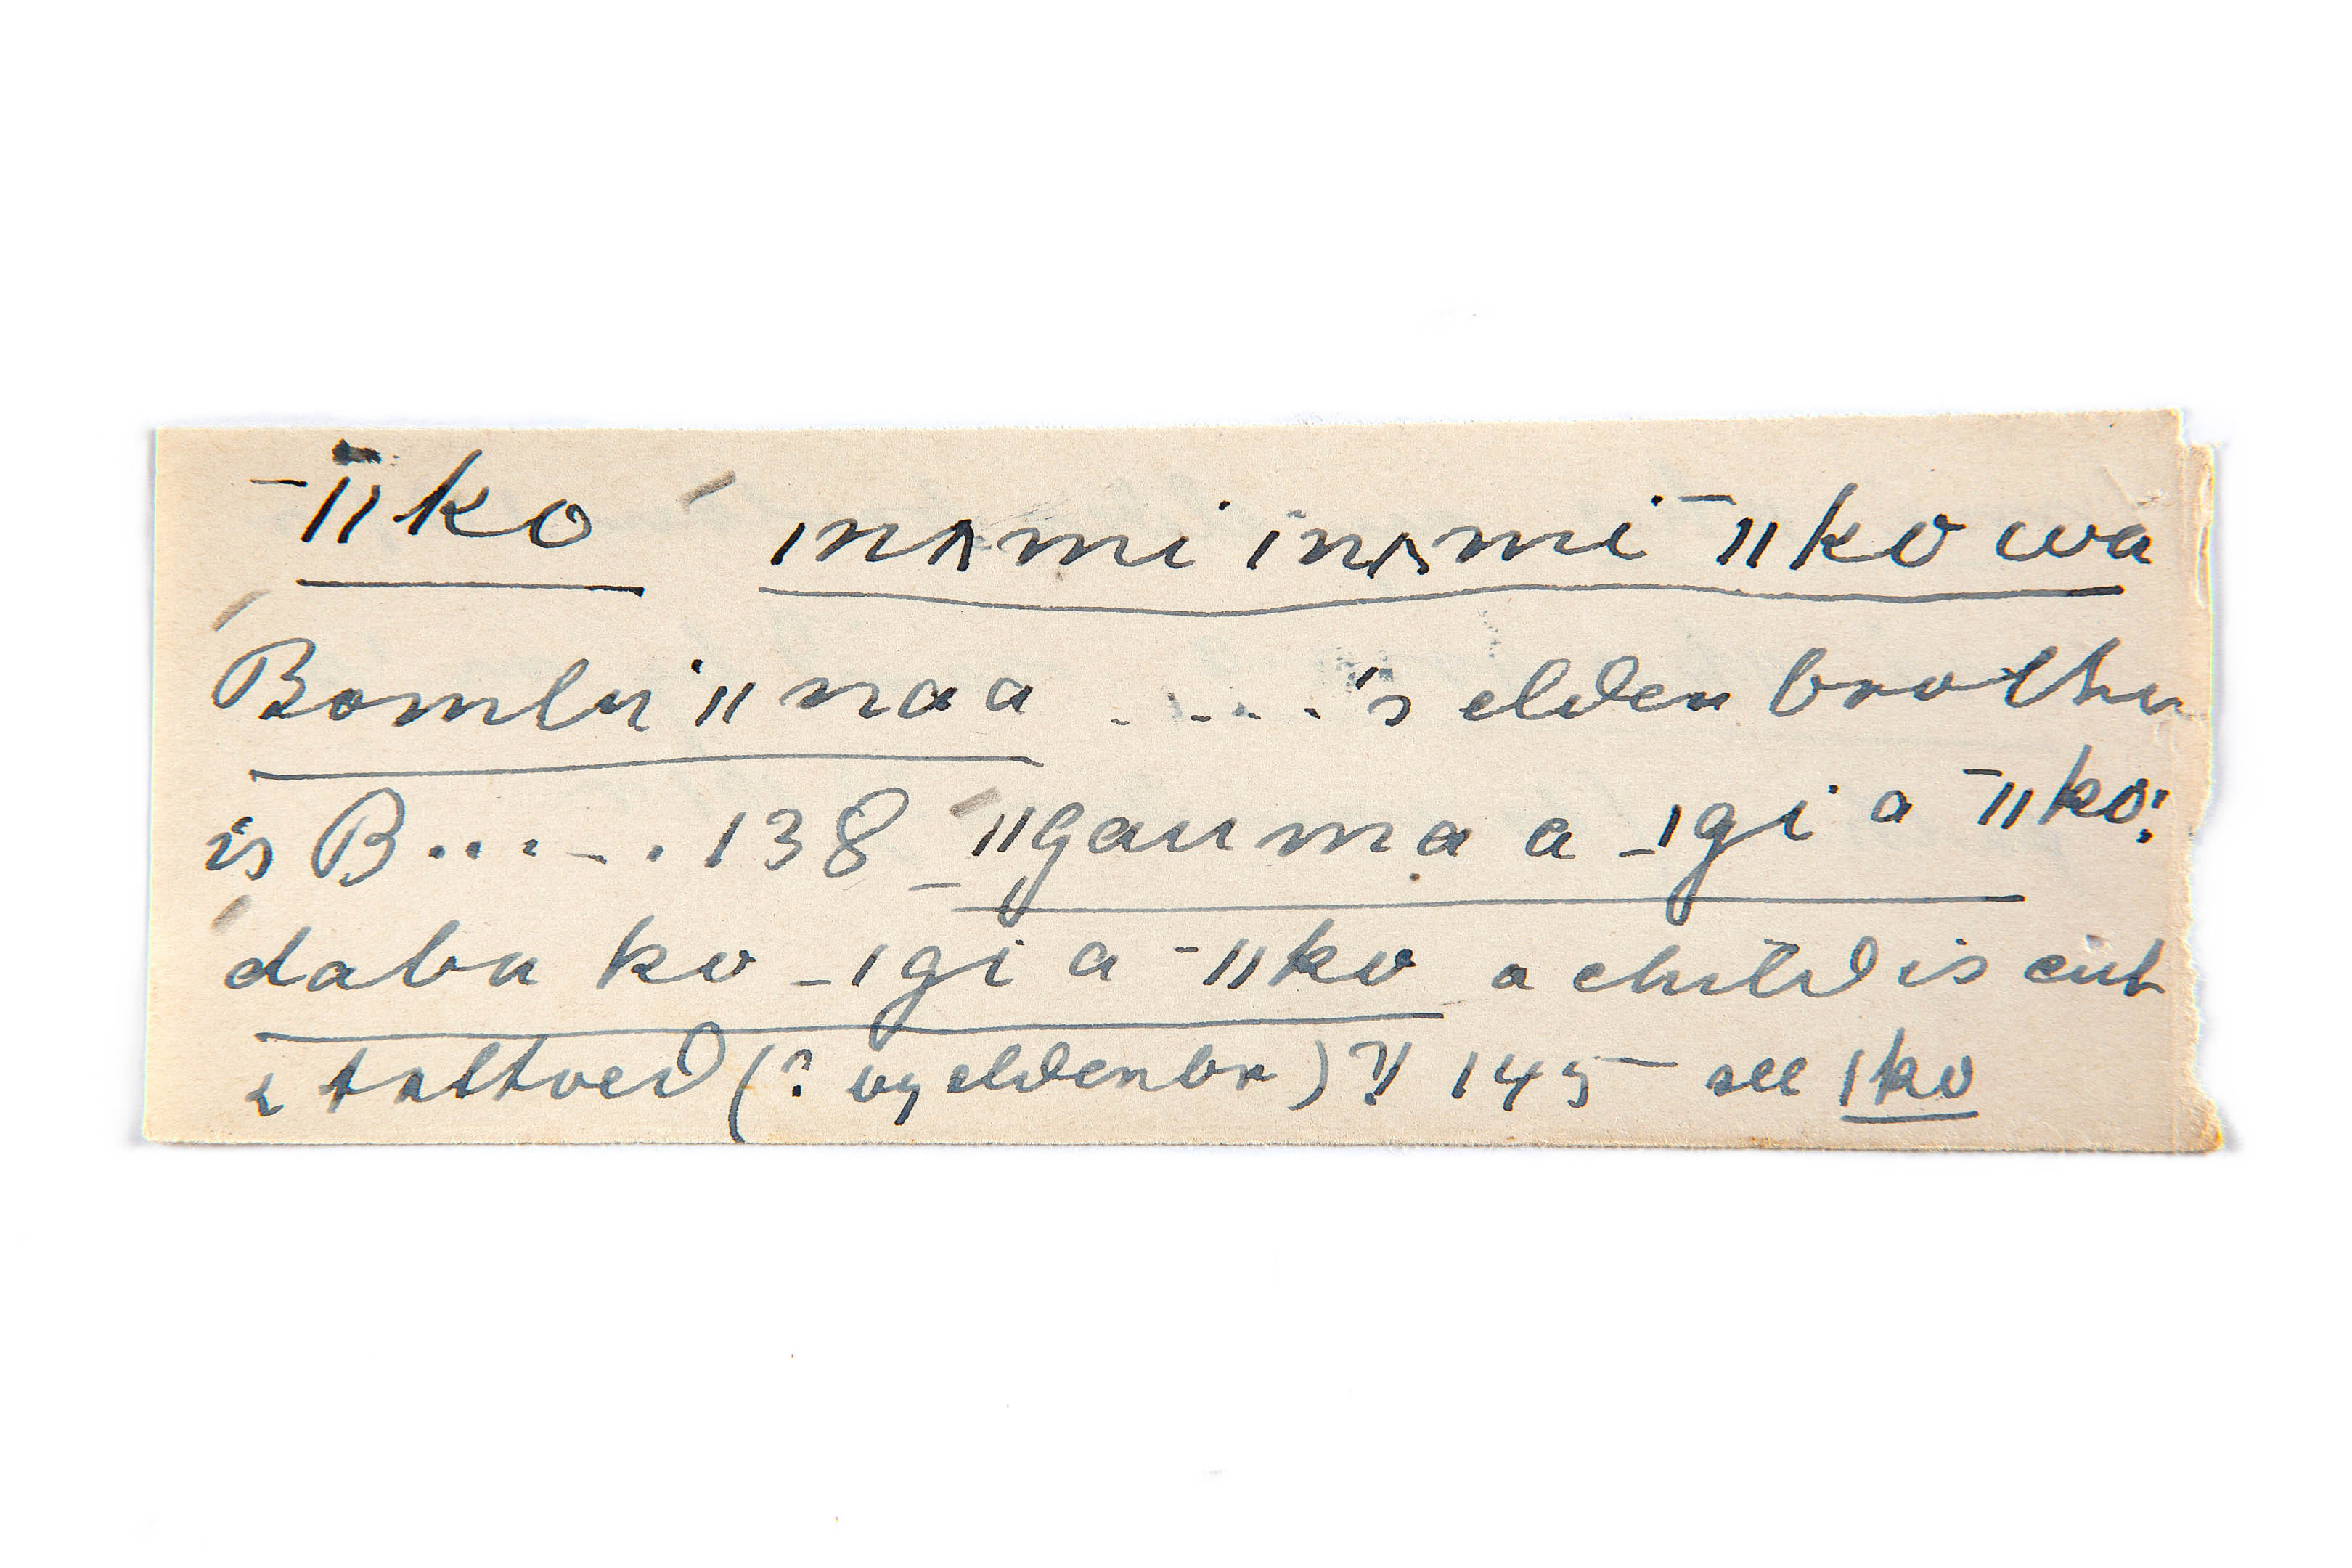 ‾ǁko ˊ ǀnʌmi ǀnʌmi ‾ǁko wa
Bomlu ǁnaa .....'s elder brother
is B...... 138 _ǁgauma a _ǀgi a ‾ǁko:
daba ko _ǀgi a ‾ǁko a child is cut
& tattoed (? by elder br) ?! 145 see ǀko